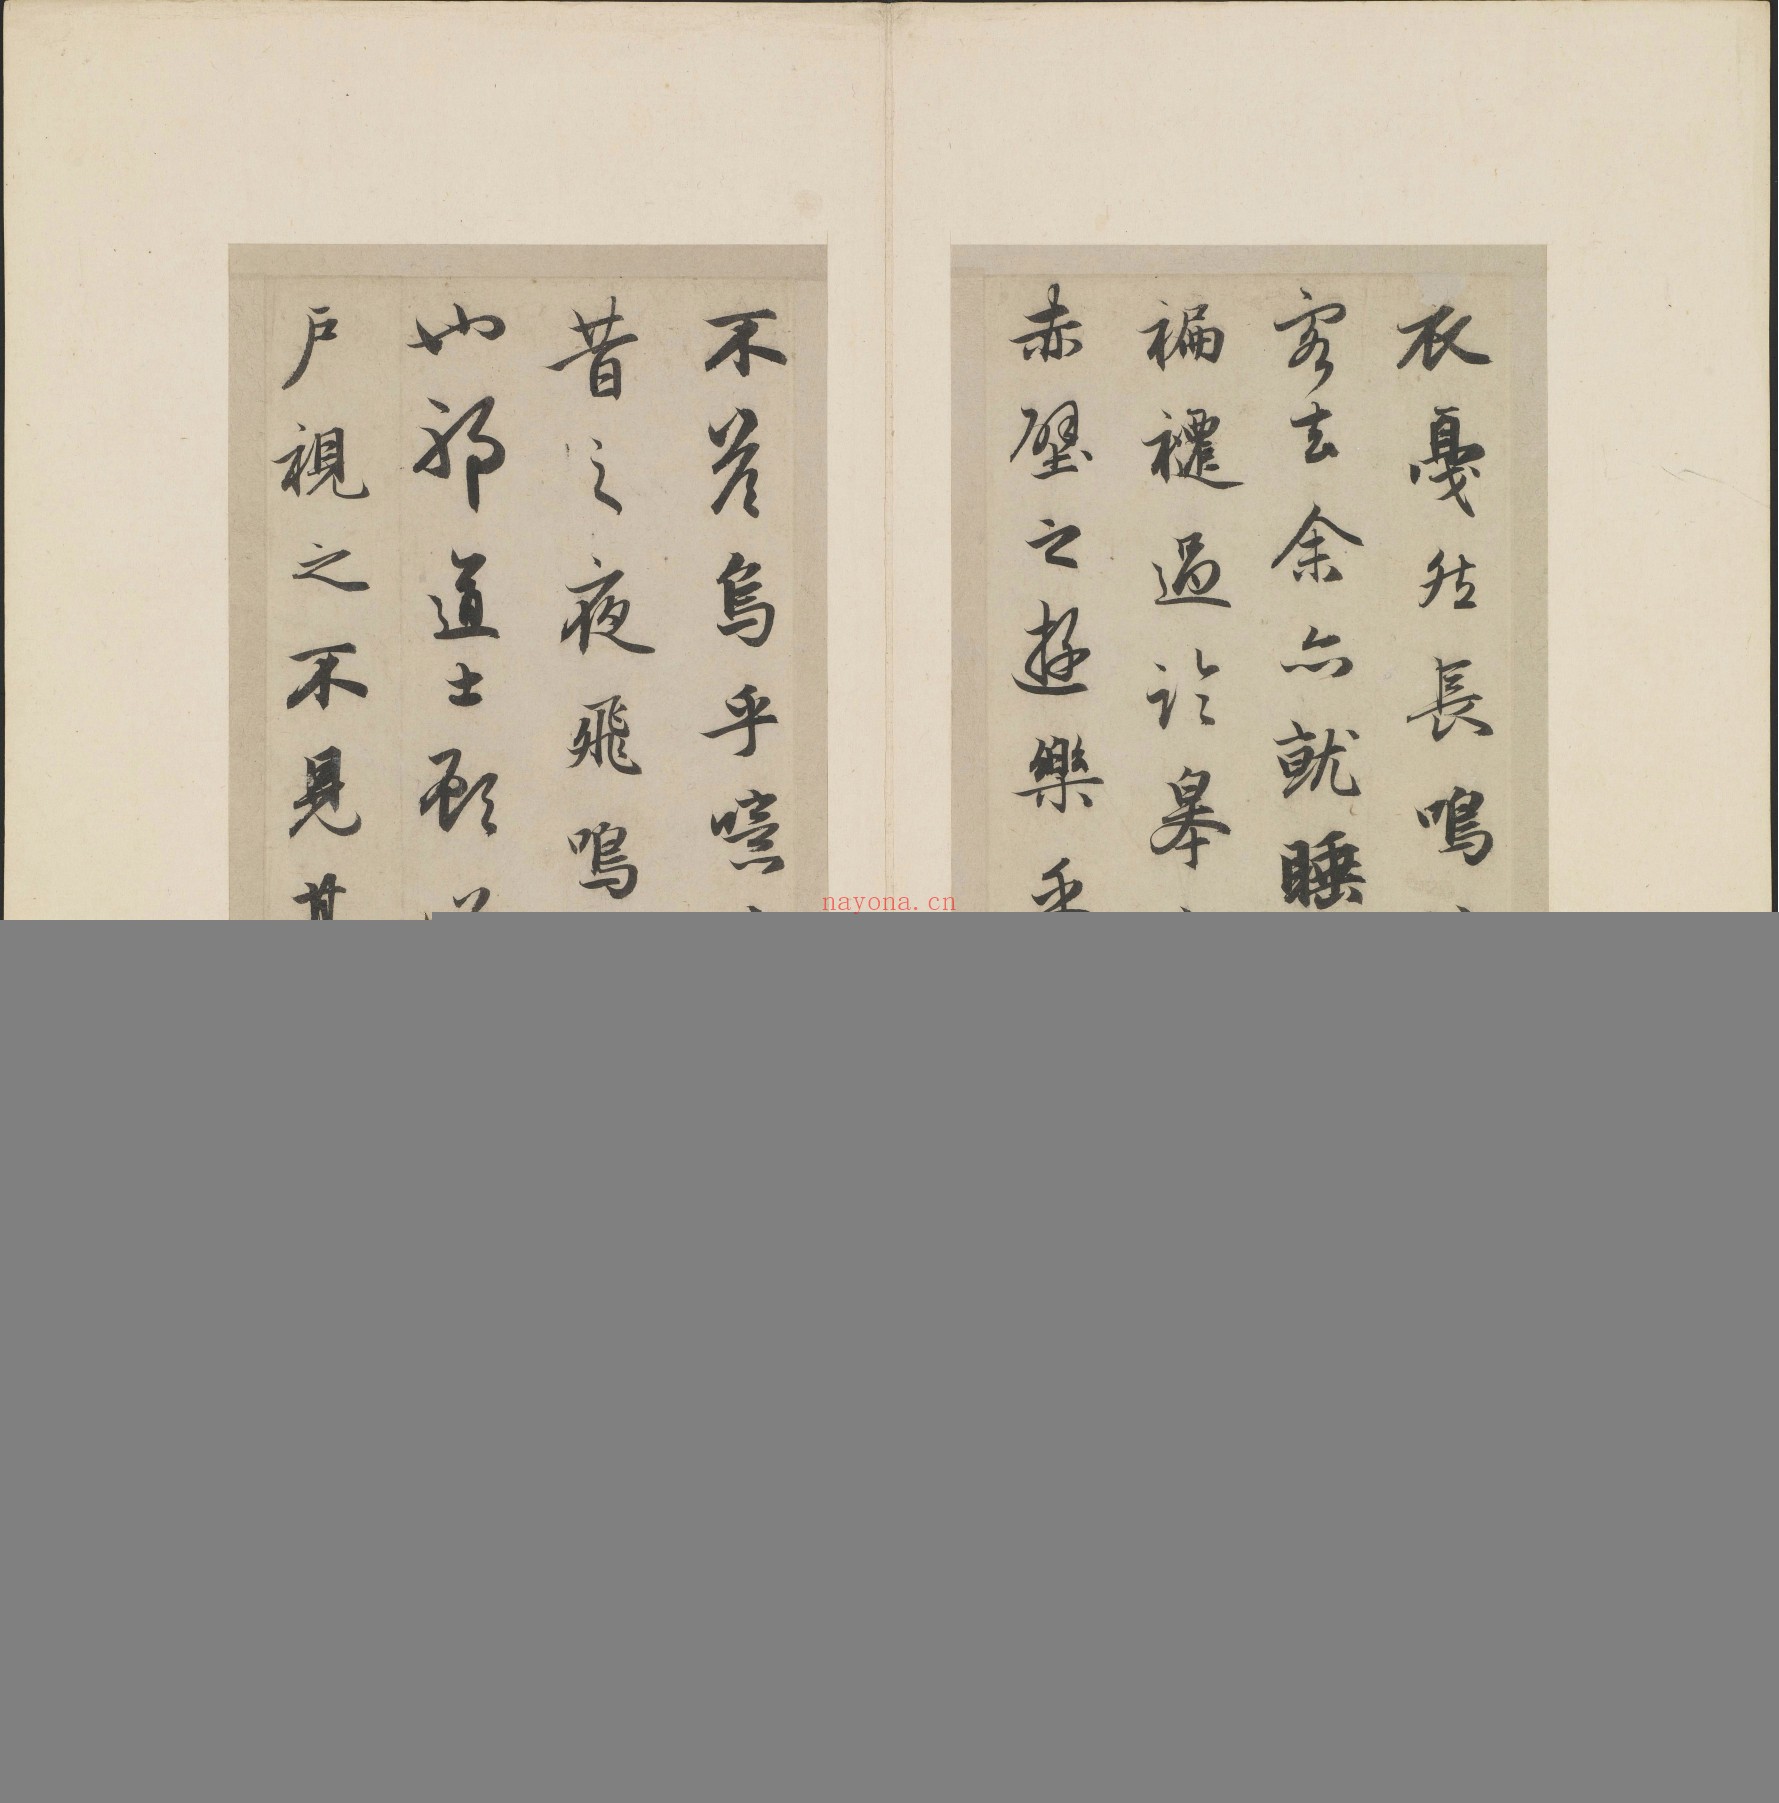 衣戛然長鳴
客去余亦就睡
褊褼過臨皋
赤壁之遊樂乎
不答烏乎噫
昔之夜飛鳴
也邪道士顧
戶視之不見其
nayona.cn